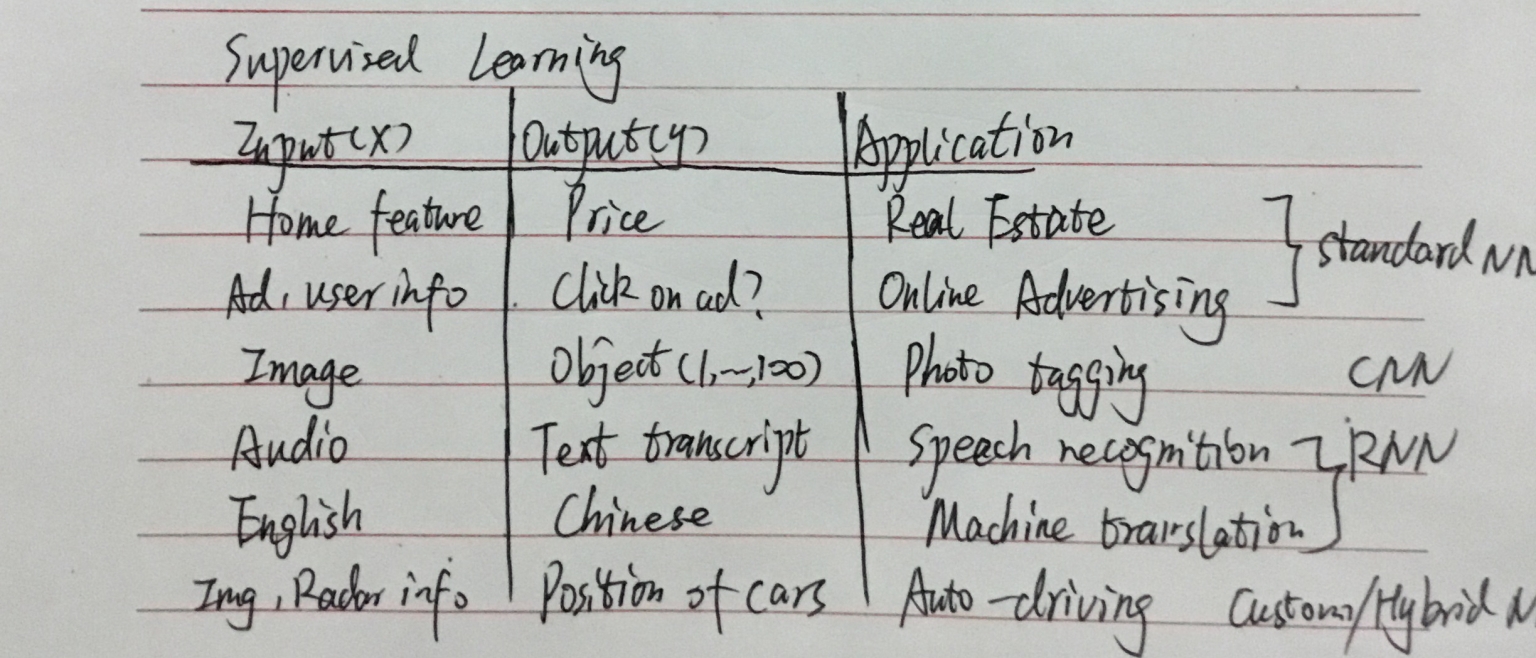 Supervised Learning
Input(X) Output(y) Application
Home feature Price Real Estate
standard NN
Ad, user info Click on ad? Online Advertising
Image Object (1,~,100) Photo tagging CNN
Audio Text transcript Speech recognition RNN
English Chinese Machine translation
Img, Radar info Position of cars Auto-driving Custom/Hybrid N